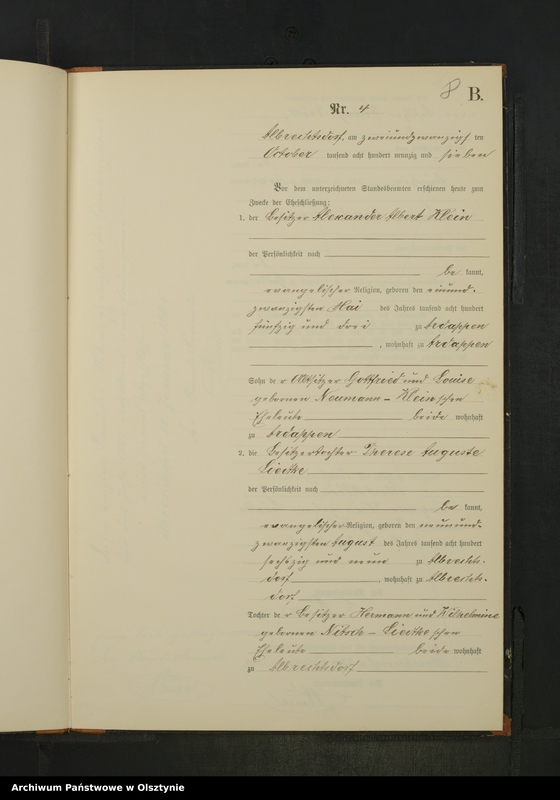 8 B.
Nr. 4
Albrechtsdorf, am zweiundzwanzigsten
October tausend acht hundert neunzig und sieben
Vor dem unterzeichneten Standesbeamten erschienen heute zum
Zwecke der Eheschließung:
1. der Besitzer Alexander Albert Klein
der Persönlichkeit nach
be kannt,
evangelischer Religion, geboren den einund-
zwanzigsten Mai des Jahres tausend acht hundert
fünfzig und drei zu Ardappen
, wohnhaft zu Ardappen
Sohn der Altsitzer Gottfried und Louise
geborenen Neumann - Klein'schen
Eheleute beide wohnhaft
zu Ardappen
2. die Besitzertochter Therese Auguste
Liedtke
der Persönlichkeit nach
be kannt,
evangelischer Religion, geboren den neunund-
zwanzigsten August des Jahres tausend acht hundert
sechszig und neun zu Albrechts-
dorf, wohnhaft zu Albrechts-
dorf
Tochter der Besitzer Hermann und Wilhelmine
geborenen Nitsch - Liedtke'schen
Eheleute beide wohnhaft
zu Albrechtsdorf
Archiwum Państwowe w Olsztynie